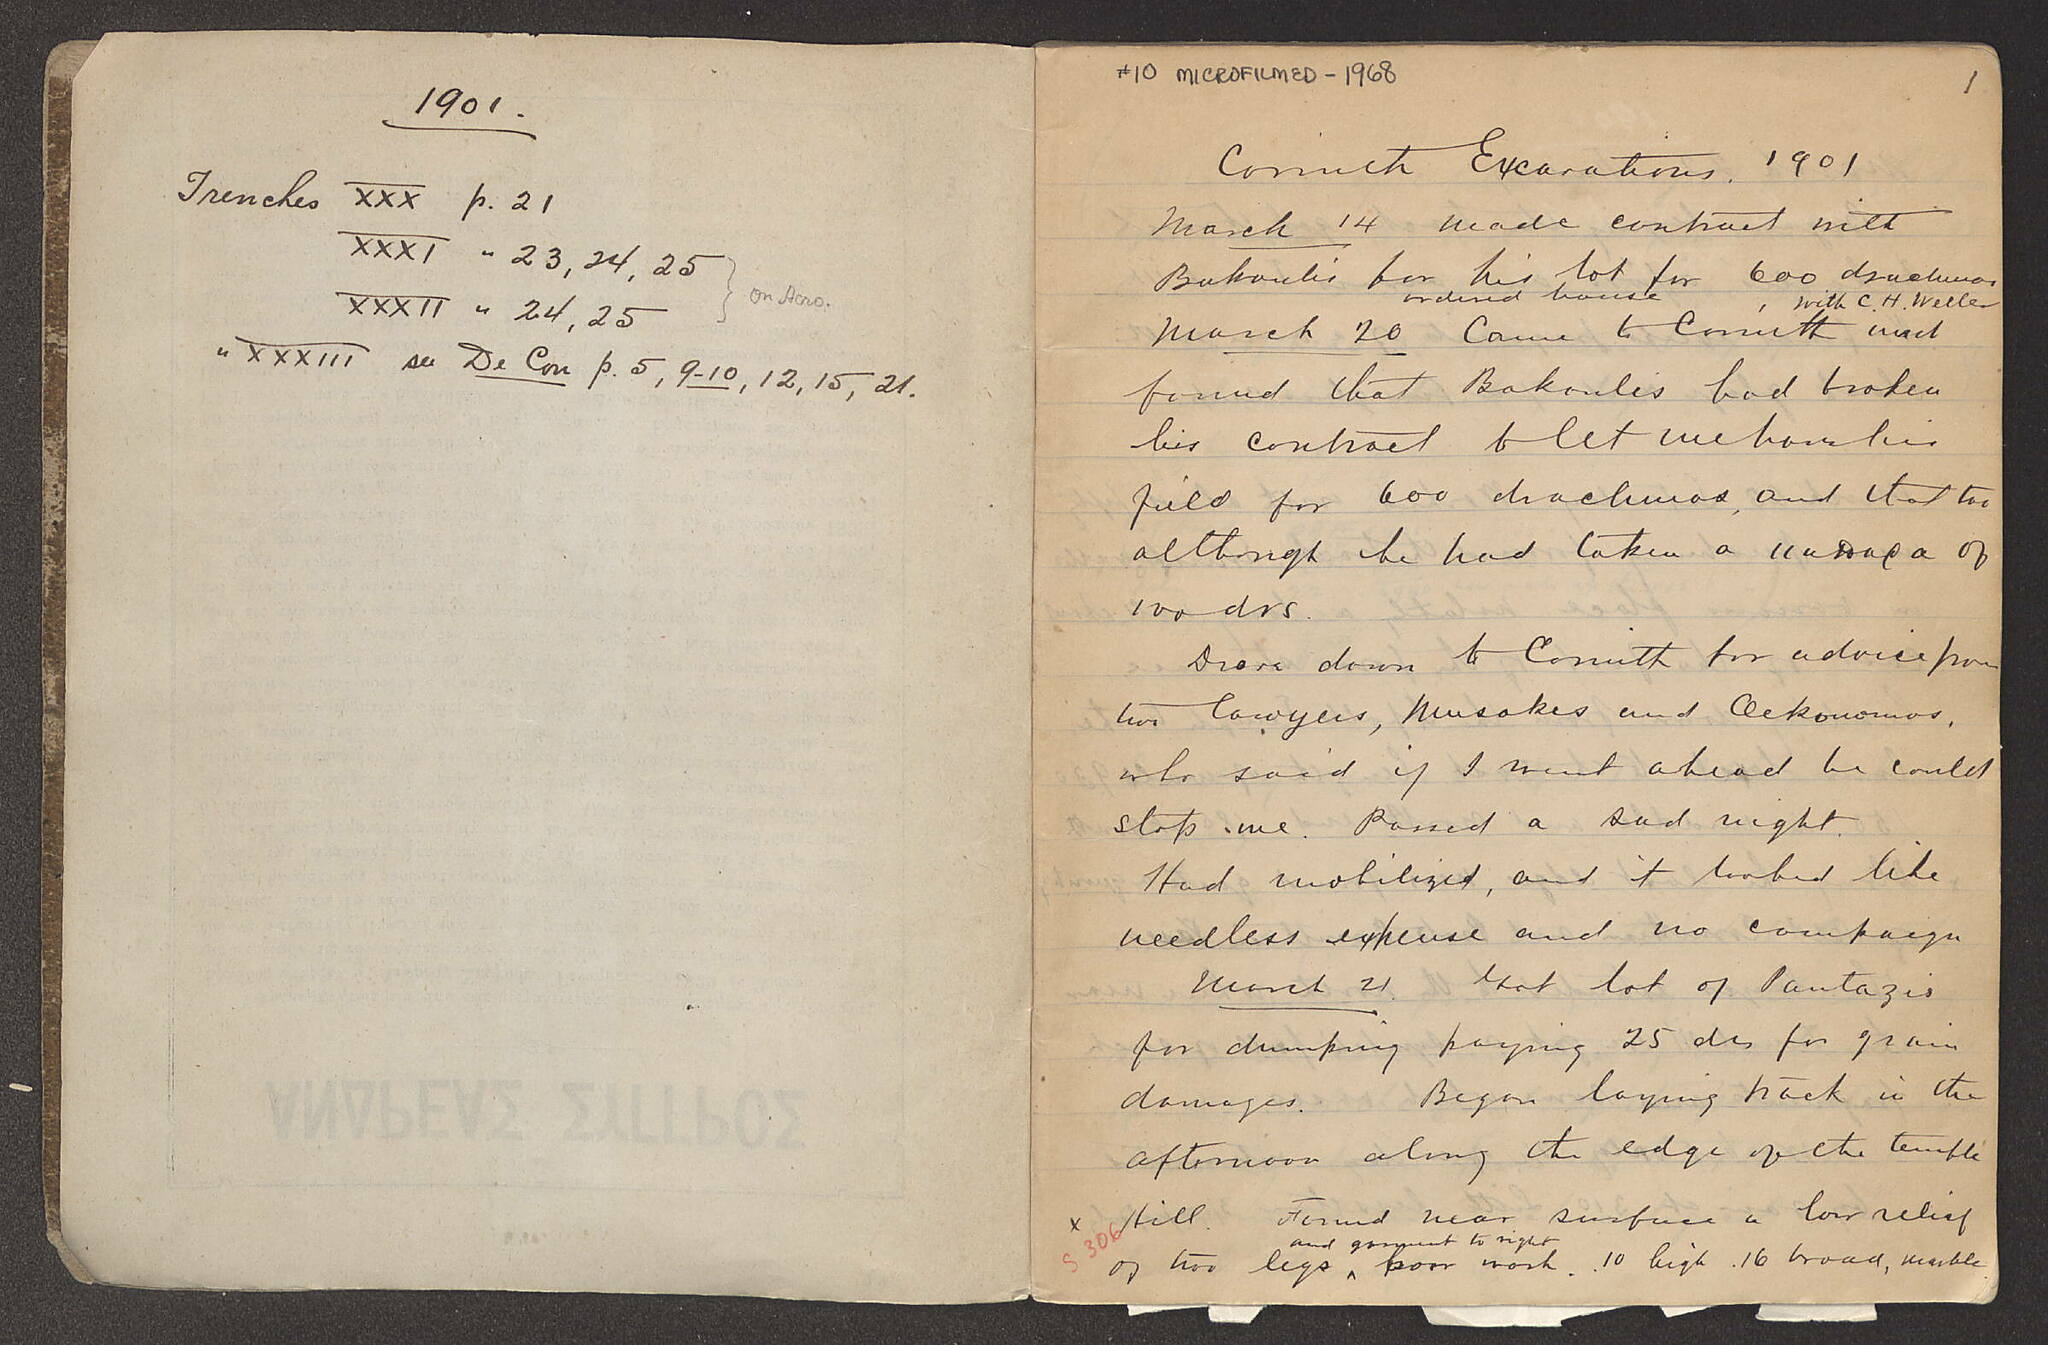 1901.
Trenches XXX p. 21
XXXI " 23, 24, 25
on Acro.
XXXII " 24, 25
" XXXIII see De Cou p. 5, 9-10, 12, 15, 21.
ΑΝΔΡΕΑΣ ΣΥΓΓΡΟΣ
#10 MICROFILMED - 1968
1
Corinth Excavations. 1901
March 14 Made contract with
Bakoulis for his lot for 600 drachmas
ordered house , with C. H. Weller
March 20 Came to Corinth and
found that Bakoulis had broken
his contract to let me have his
field for 600 drachmas, and that too
although he had taken a καπαρα of
100 drs.
Drove down to Corinth for advice from
two lawyers, Musakes and Oekonomos,
who said if I went ahead he could
stop me. Passed a sad night.
Had mobilized, and it looked like
needless expense and no campaign
March 21. Got lot of Pantazis
for dumping paying 25 drs for grain
damages. Began laying track in the
afternoon along the edge of the temple
x Hill. Found near surface a low relief
S 306
and garment to right
of two legs ^ poor work. .10 high .16 broad, marble.